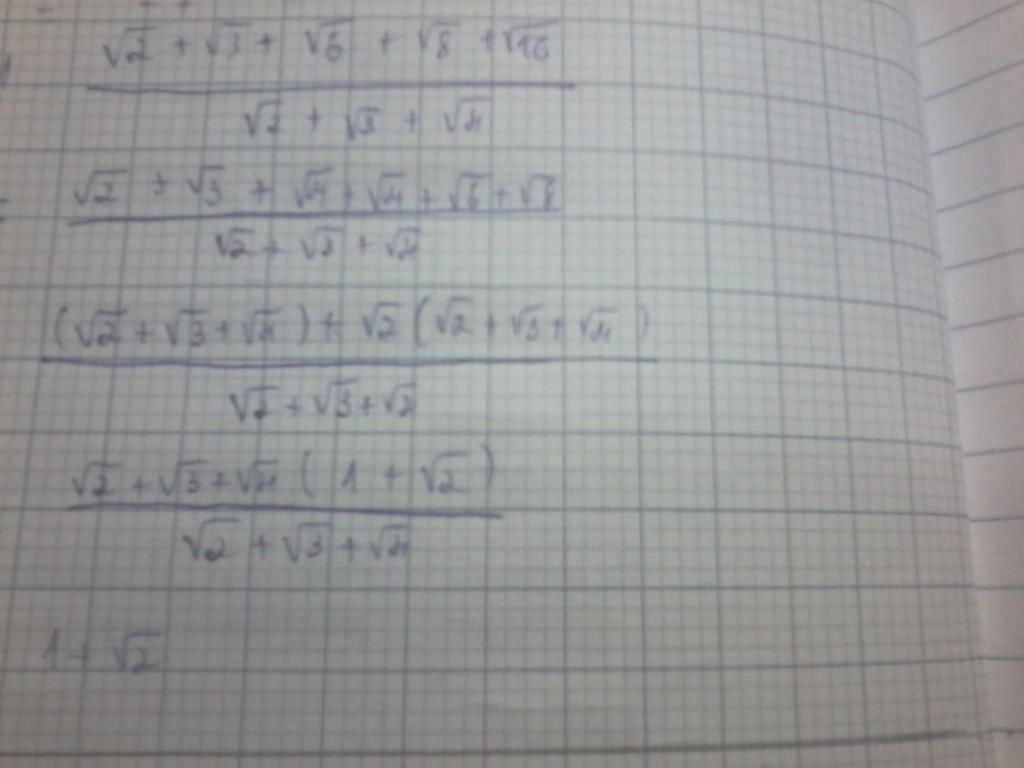 √2 + √3 + √6 + √8 + √16
√2 + √3 + √4
√2 + √3 + √4 + √4 + √6 + √8
√2 + √3 + √2
(√2 + √3 + √4) + √2 (√2 + √3 + √4)
√2 + √3 + √2
√2 + √3 + √4 (1 + √2)
√2 + √3 + √4
1 + √2